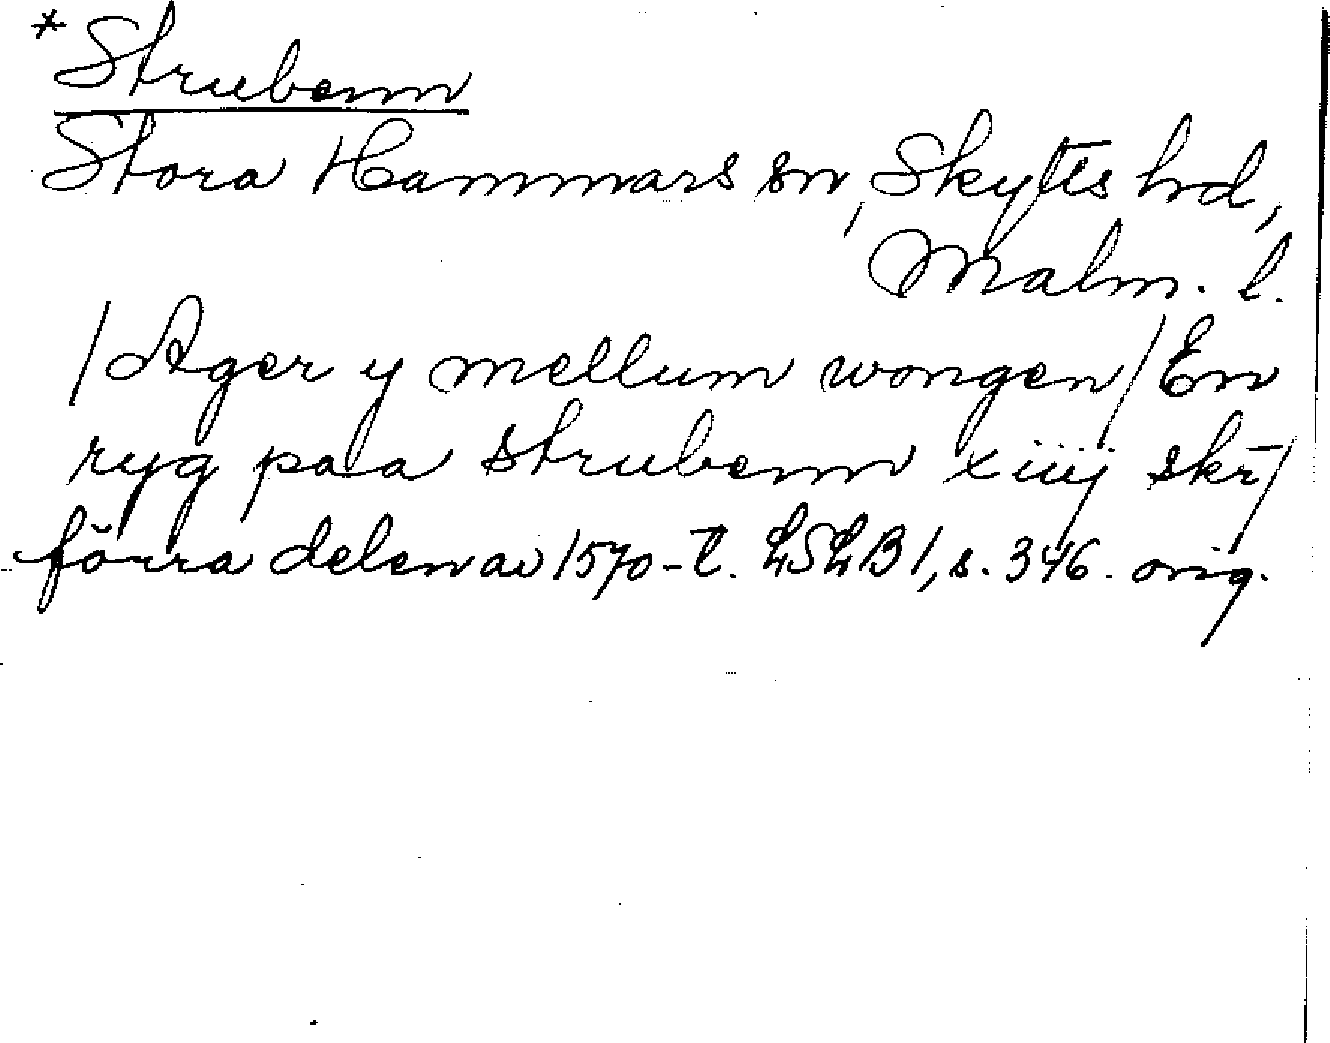 *Strubenn
Stora Hammars sn, Skytts hd,
Malm. l.
/Ager y mellum wongen/ En
ryg paa strubenn xiiij skr̄/
förra delen av 1570-t. LSLB1, s. 346. orig.